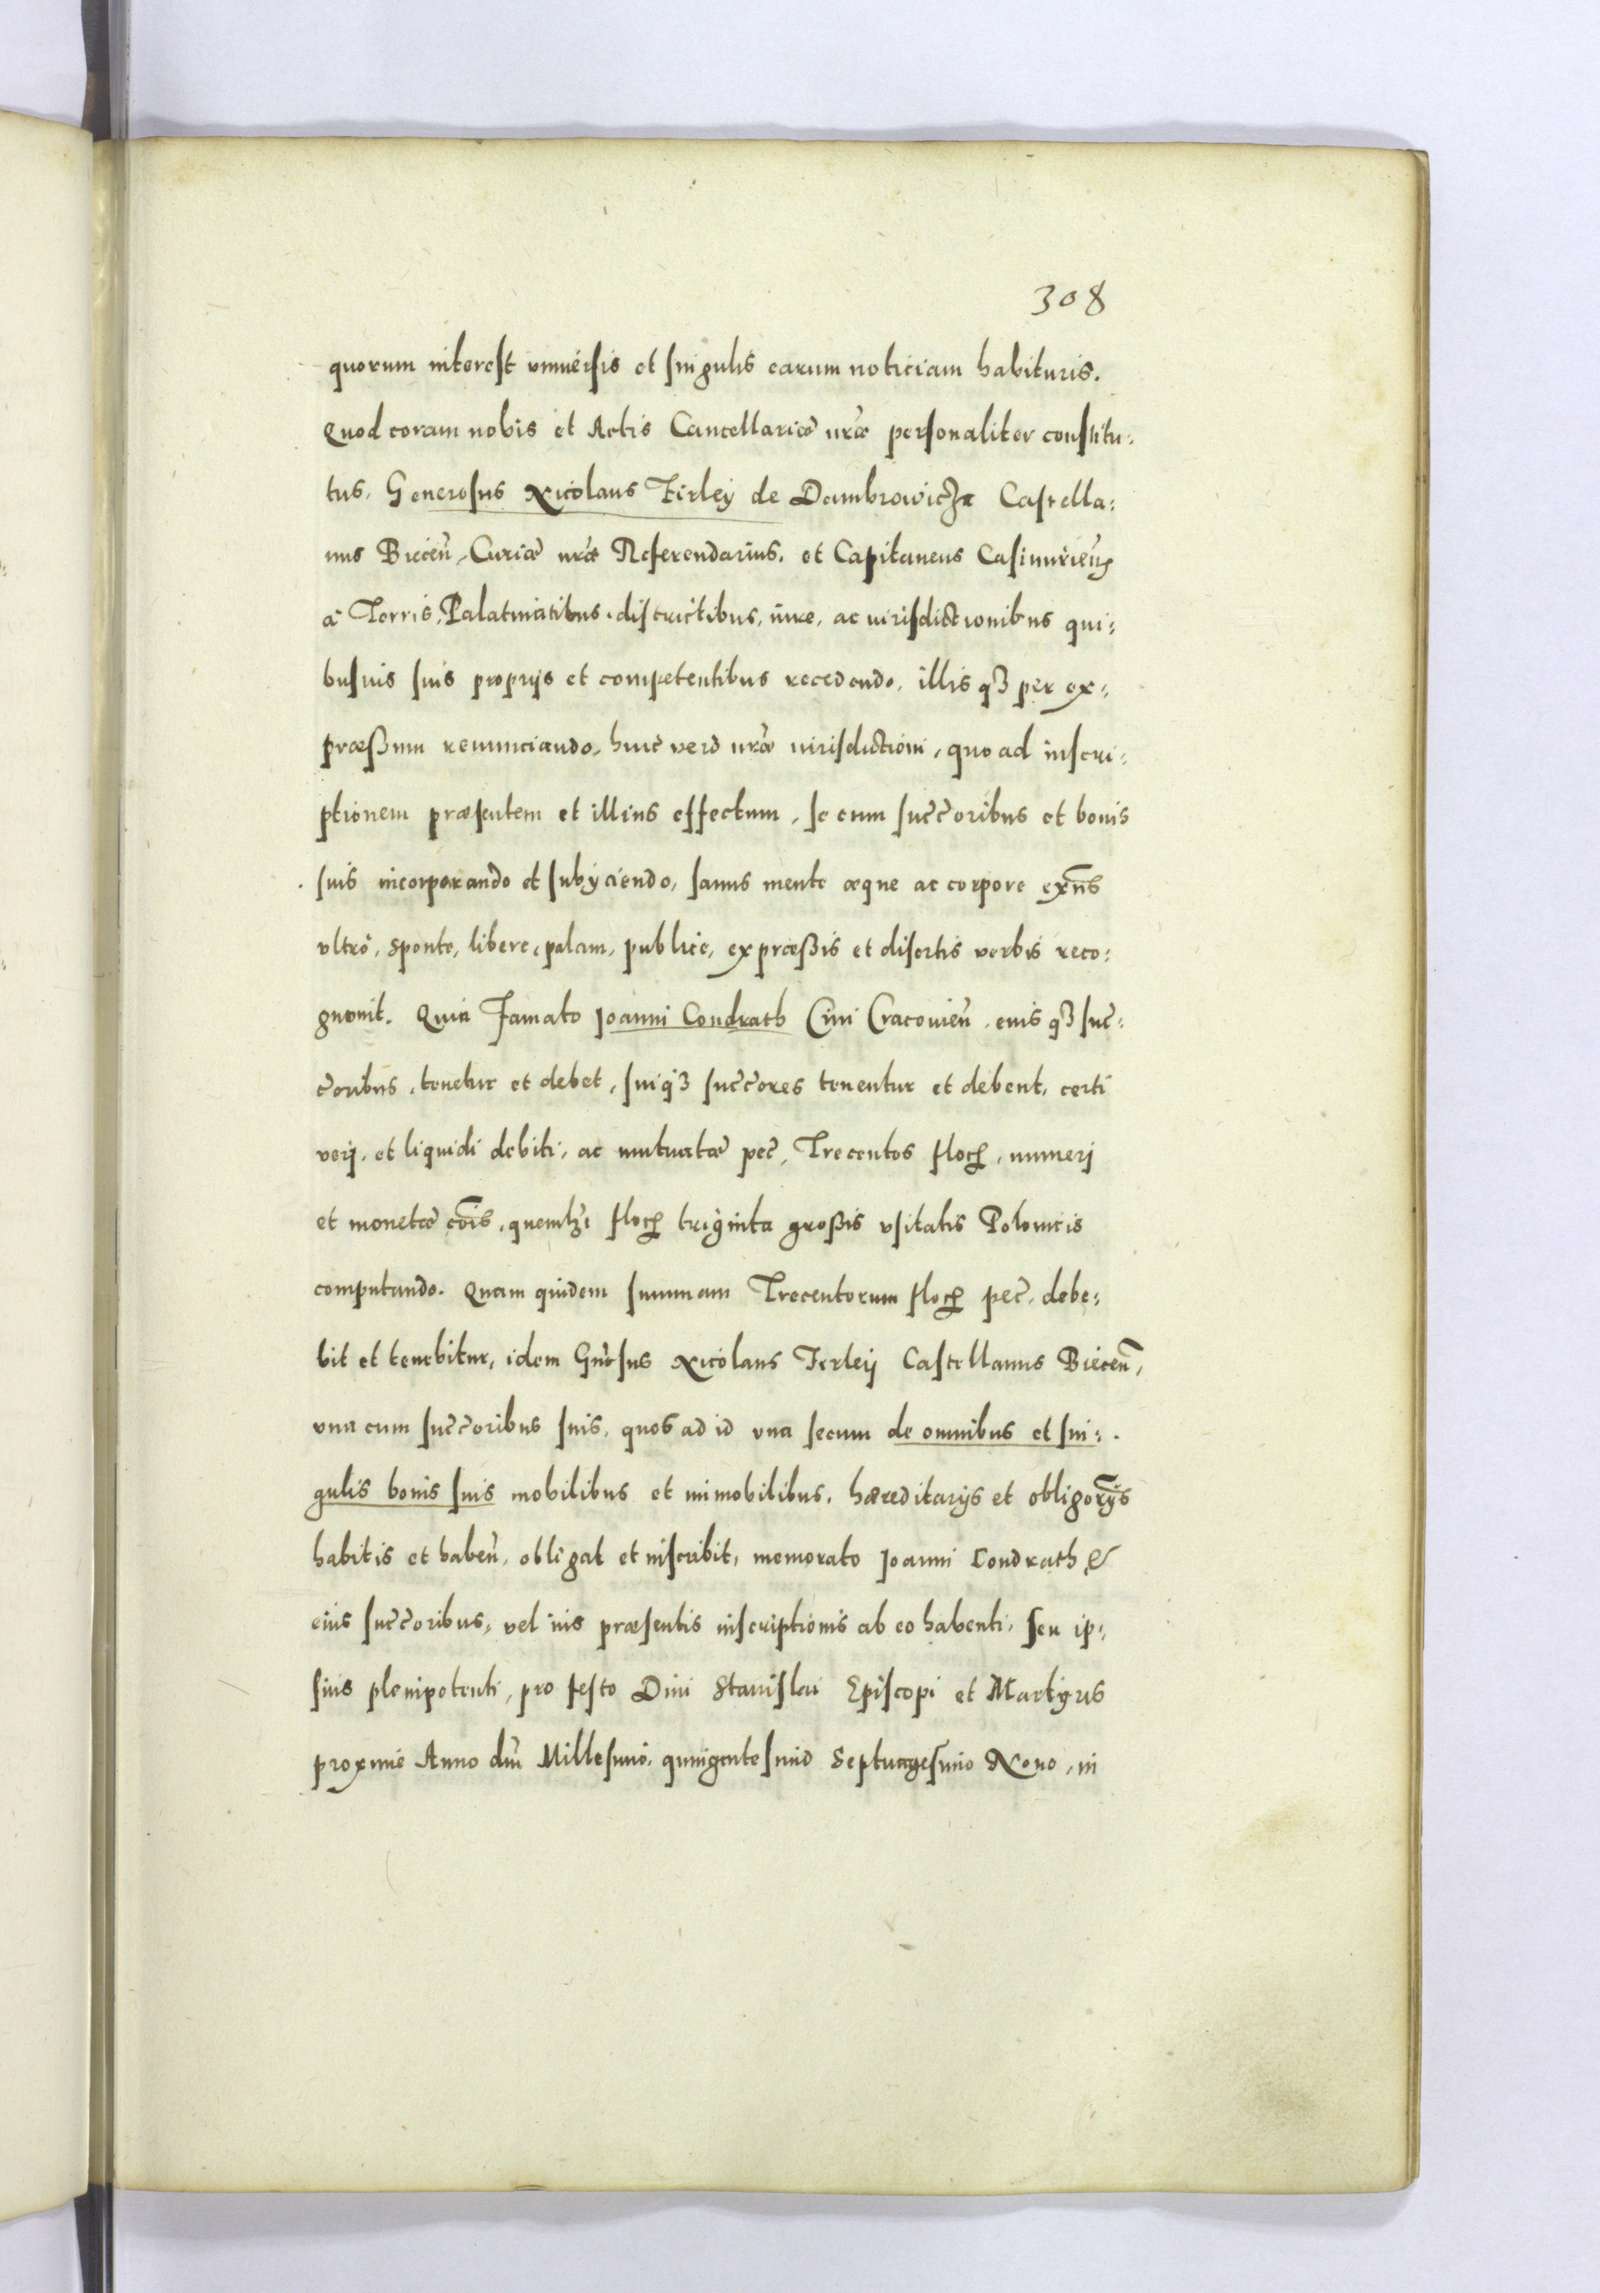 308
quorum interest vniuersis et singulis earum noticiam habituris.
Quod coram nobis et Actis Cancellariæ nr̃æ personaliter constitu:
tus, Generosus Nicolaus Firleÿ de Dambrowicza Castella:
nus Biecen̄, Curiæ nr̃æ Referendarius, et Capitaneus Casimirien̄
à Terris, Palatinatibus, districtibus, iure, ac iurisdictionibus qui:
busuis suis proprijs et competentibus recedendo, illisqꝫ per ex:
præßum renunciando, huic verò nr̃æ iurisdictioni, quo ad inscri:
ptionem præsentem et illius effectum, se cum succ̄oribus et bonis
suis incorporando et subijciendo, sanus mente æque ac corpore exn̄s
vltrò, sponte, libere, palam, publice, expræßis et disertis verbis reco:
gnouit. Quia Famato Joanni Condrath Ciui Cracouien̄, eiusqꝫ suc̄:
c̄oribus, tenetur et debet, suiqꝫ succ̄ores tenentur et debent, certi
verj, et liquidi debiti, ac mutuatæ pec̄, Trecentos floꝝ, numerj
et monetæ cōis, quemlꝫt floꝝ triginta großis vsitatis Polonicis
computando. Quam quidem summam Trecentorum floꝝ pec̄, debe:
bit et tenebitur, idem Gn̄rsus Nicolaus Firleÿ Castellanus Biecen̄,
vna cum succ̄oribus suis, quos ad id vna secum de omnibus et sin:
gulis bonis suis mobilibus et immobilibus, hæreditarijs et obligor̄ijs
habitis et haben̄, obligat et inscribit, memorato Joanni Condrath &
eius succ̄oribus, vel ius præsentis inscriptionis ab eo habenti, seu ip:
sius plenipotenti, pro festo Diui Stanislai Episcopi et Martyris
proxime Anno dn̄i Millesimo, quingentesimo Septuagesimo Nono, in